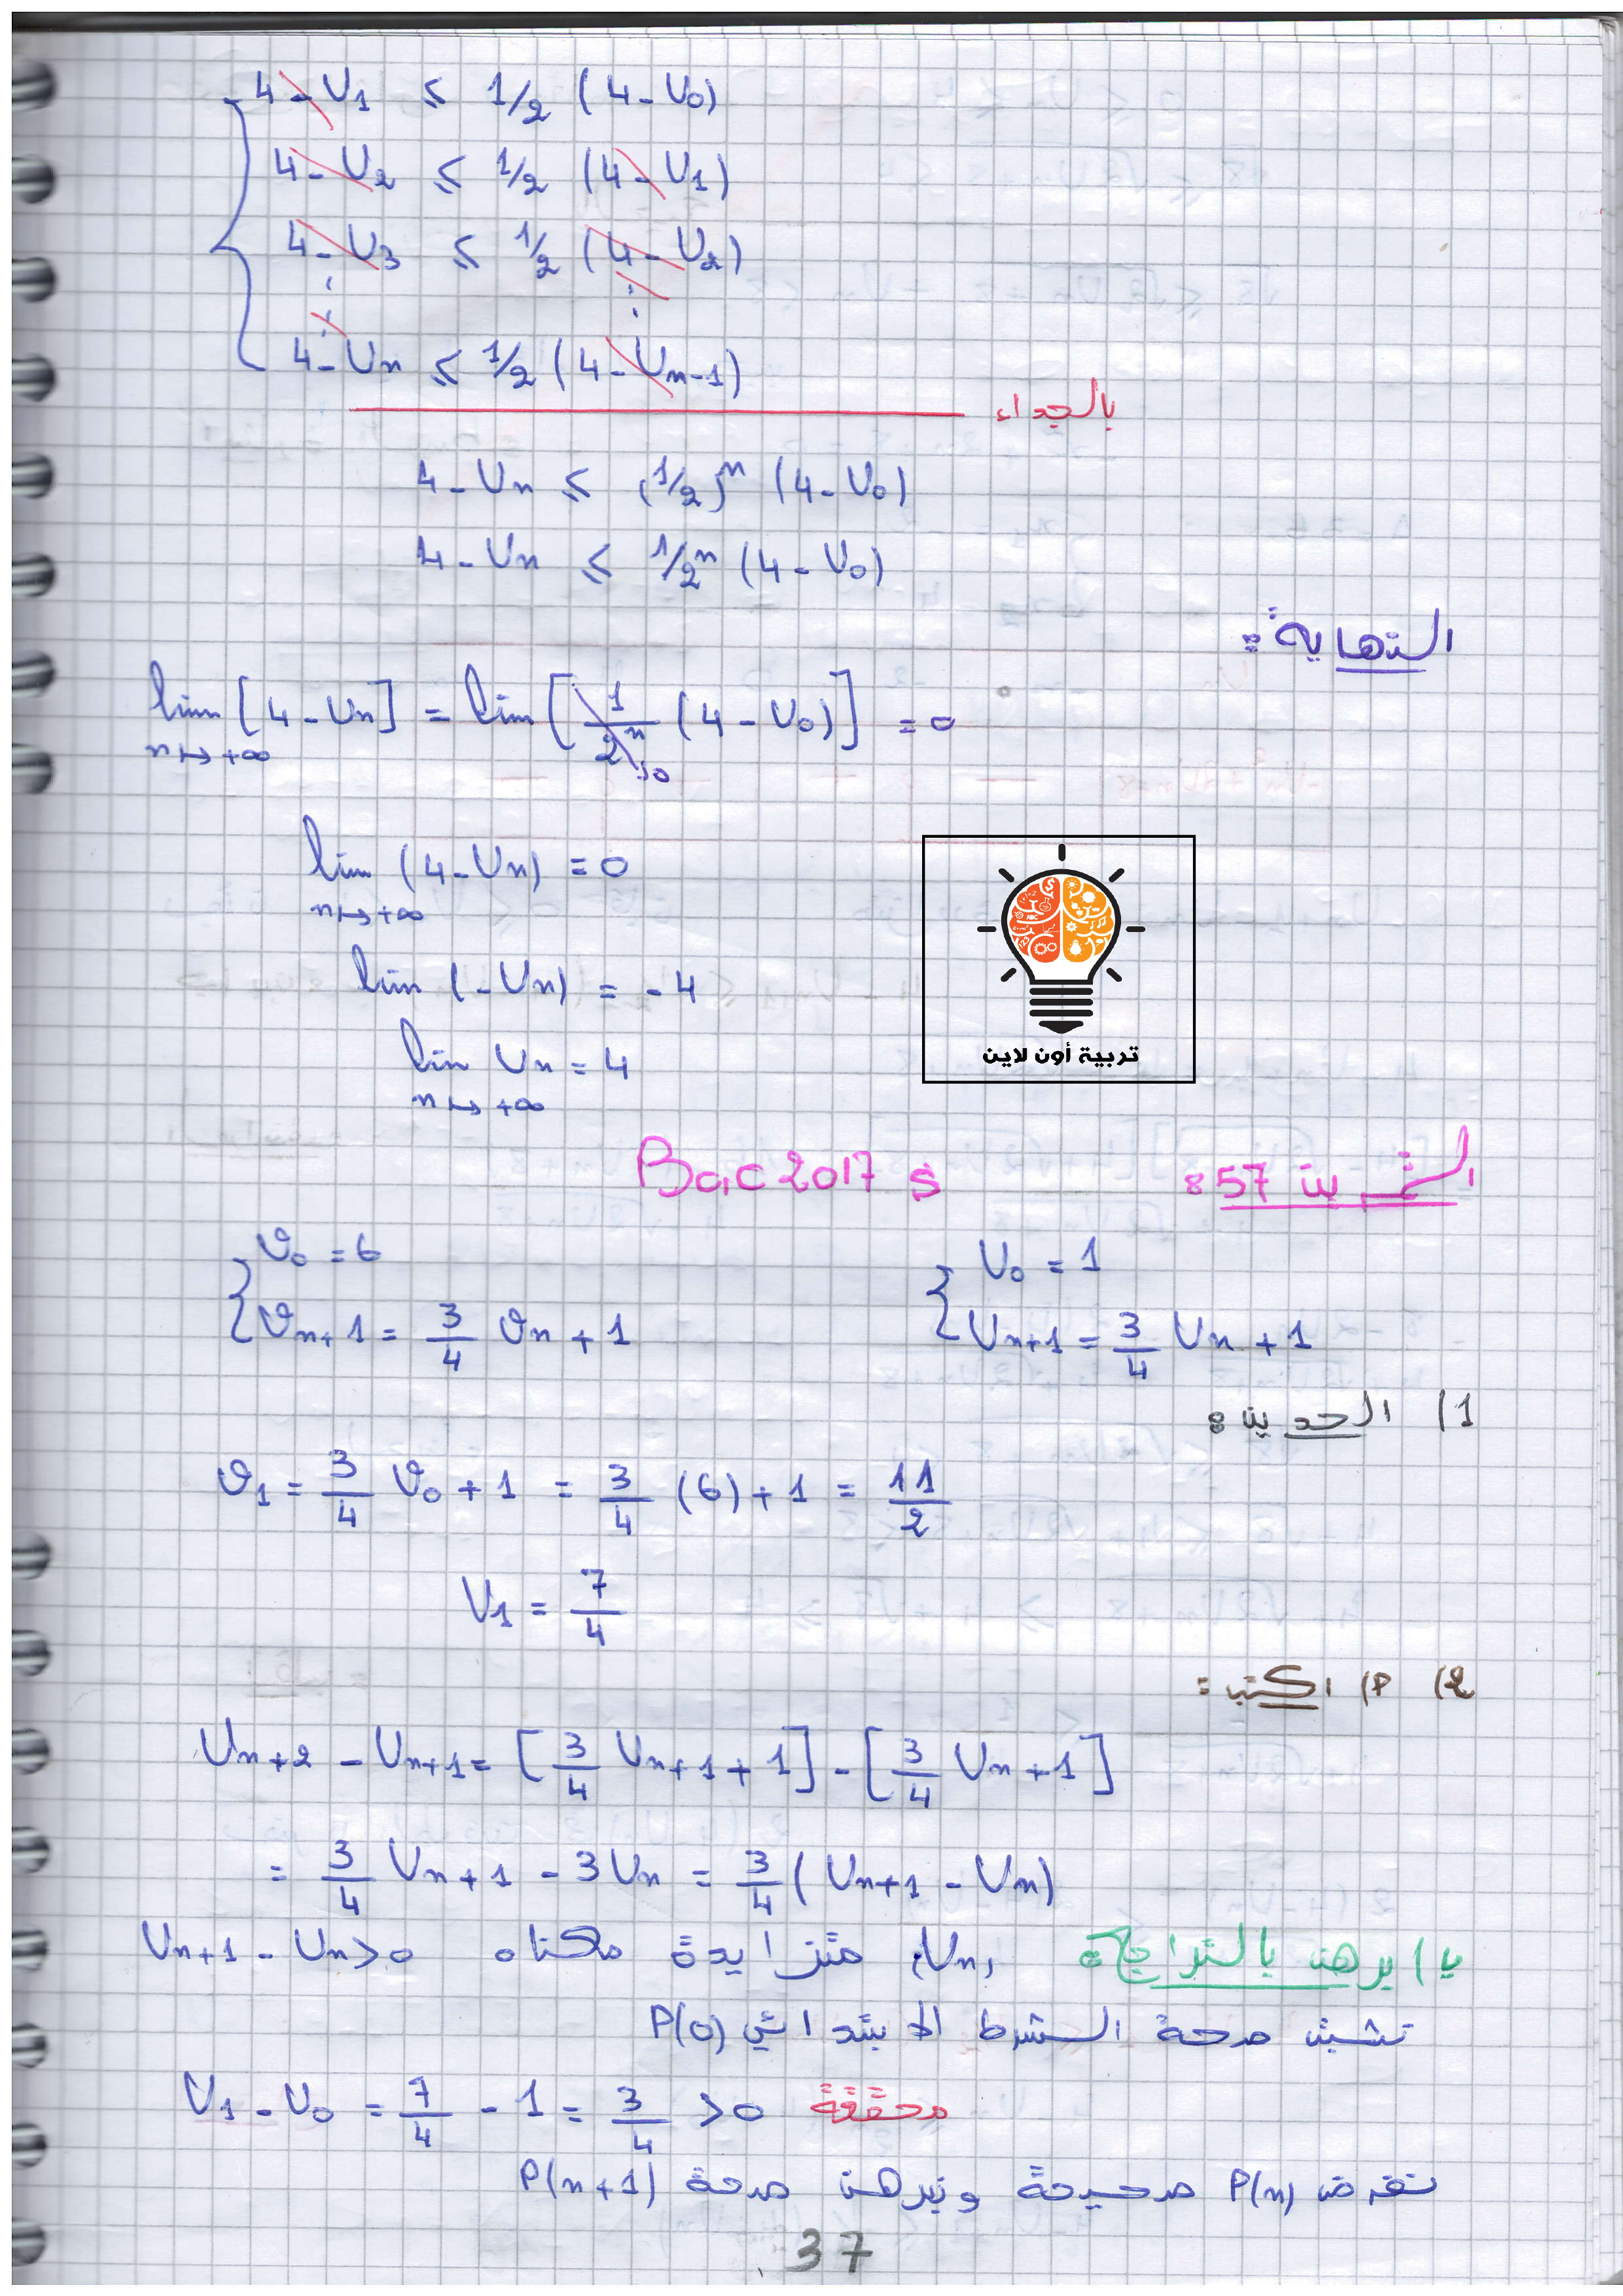 4 - U1 ≤ 1/2 (4 - U0)
4 - U2 ≤ 1/2 (4 - U1)
4 - U3 ≤ 1/2 (4 - U2)
⋮ ⋮
4 - Un ≤ 1/2 (4 - Un-1)
بالجداء
4 - Un ≤ (1/2)^n (4 - U0)
4 - Un ≤ 1/2^n (4 - U0)
النهاية:
lim [4 - Un] = lim [1/2^n (4 - U0)] = 0
n↦+∞ 0
lim (4 - Un) = 0
n↦+∞
lim (-Un) = -4
lim Un = 4
n↦+∞
تربية أون لاين
التمرين 57: Bac 2017 s
U0 = 1 v0 = 6
Un+1 = 3/4 Un + 1 vn+1 = 3/4 vn + 1
1) الحدين:
v1 = 3/4 v0 + 1 = 3/4 (6) + 1 = 11/2
U1 = 7/4
2) P) اكتب:
Un+2 - Un+1 = [3/4 Un+1 + 1] - [3/4 Un + 1]
= 3/4 Un+1 - 3Un = 3/4 (Un+1 - Un)
ب) برهن بالتراجع: (Un) متزايدة معناه Un+1 - Un > 0
نثبت صحة الشرط الابتدائي P(0)
U1 - U0 = 7/4 - 1 = 3/4 > 0 محققة
نفرض P(n) صحيحة ونبرهن صحة P(n+1)
37